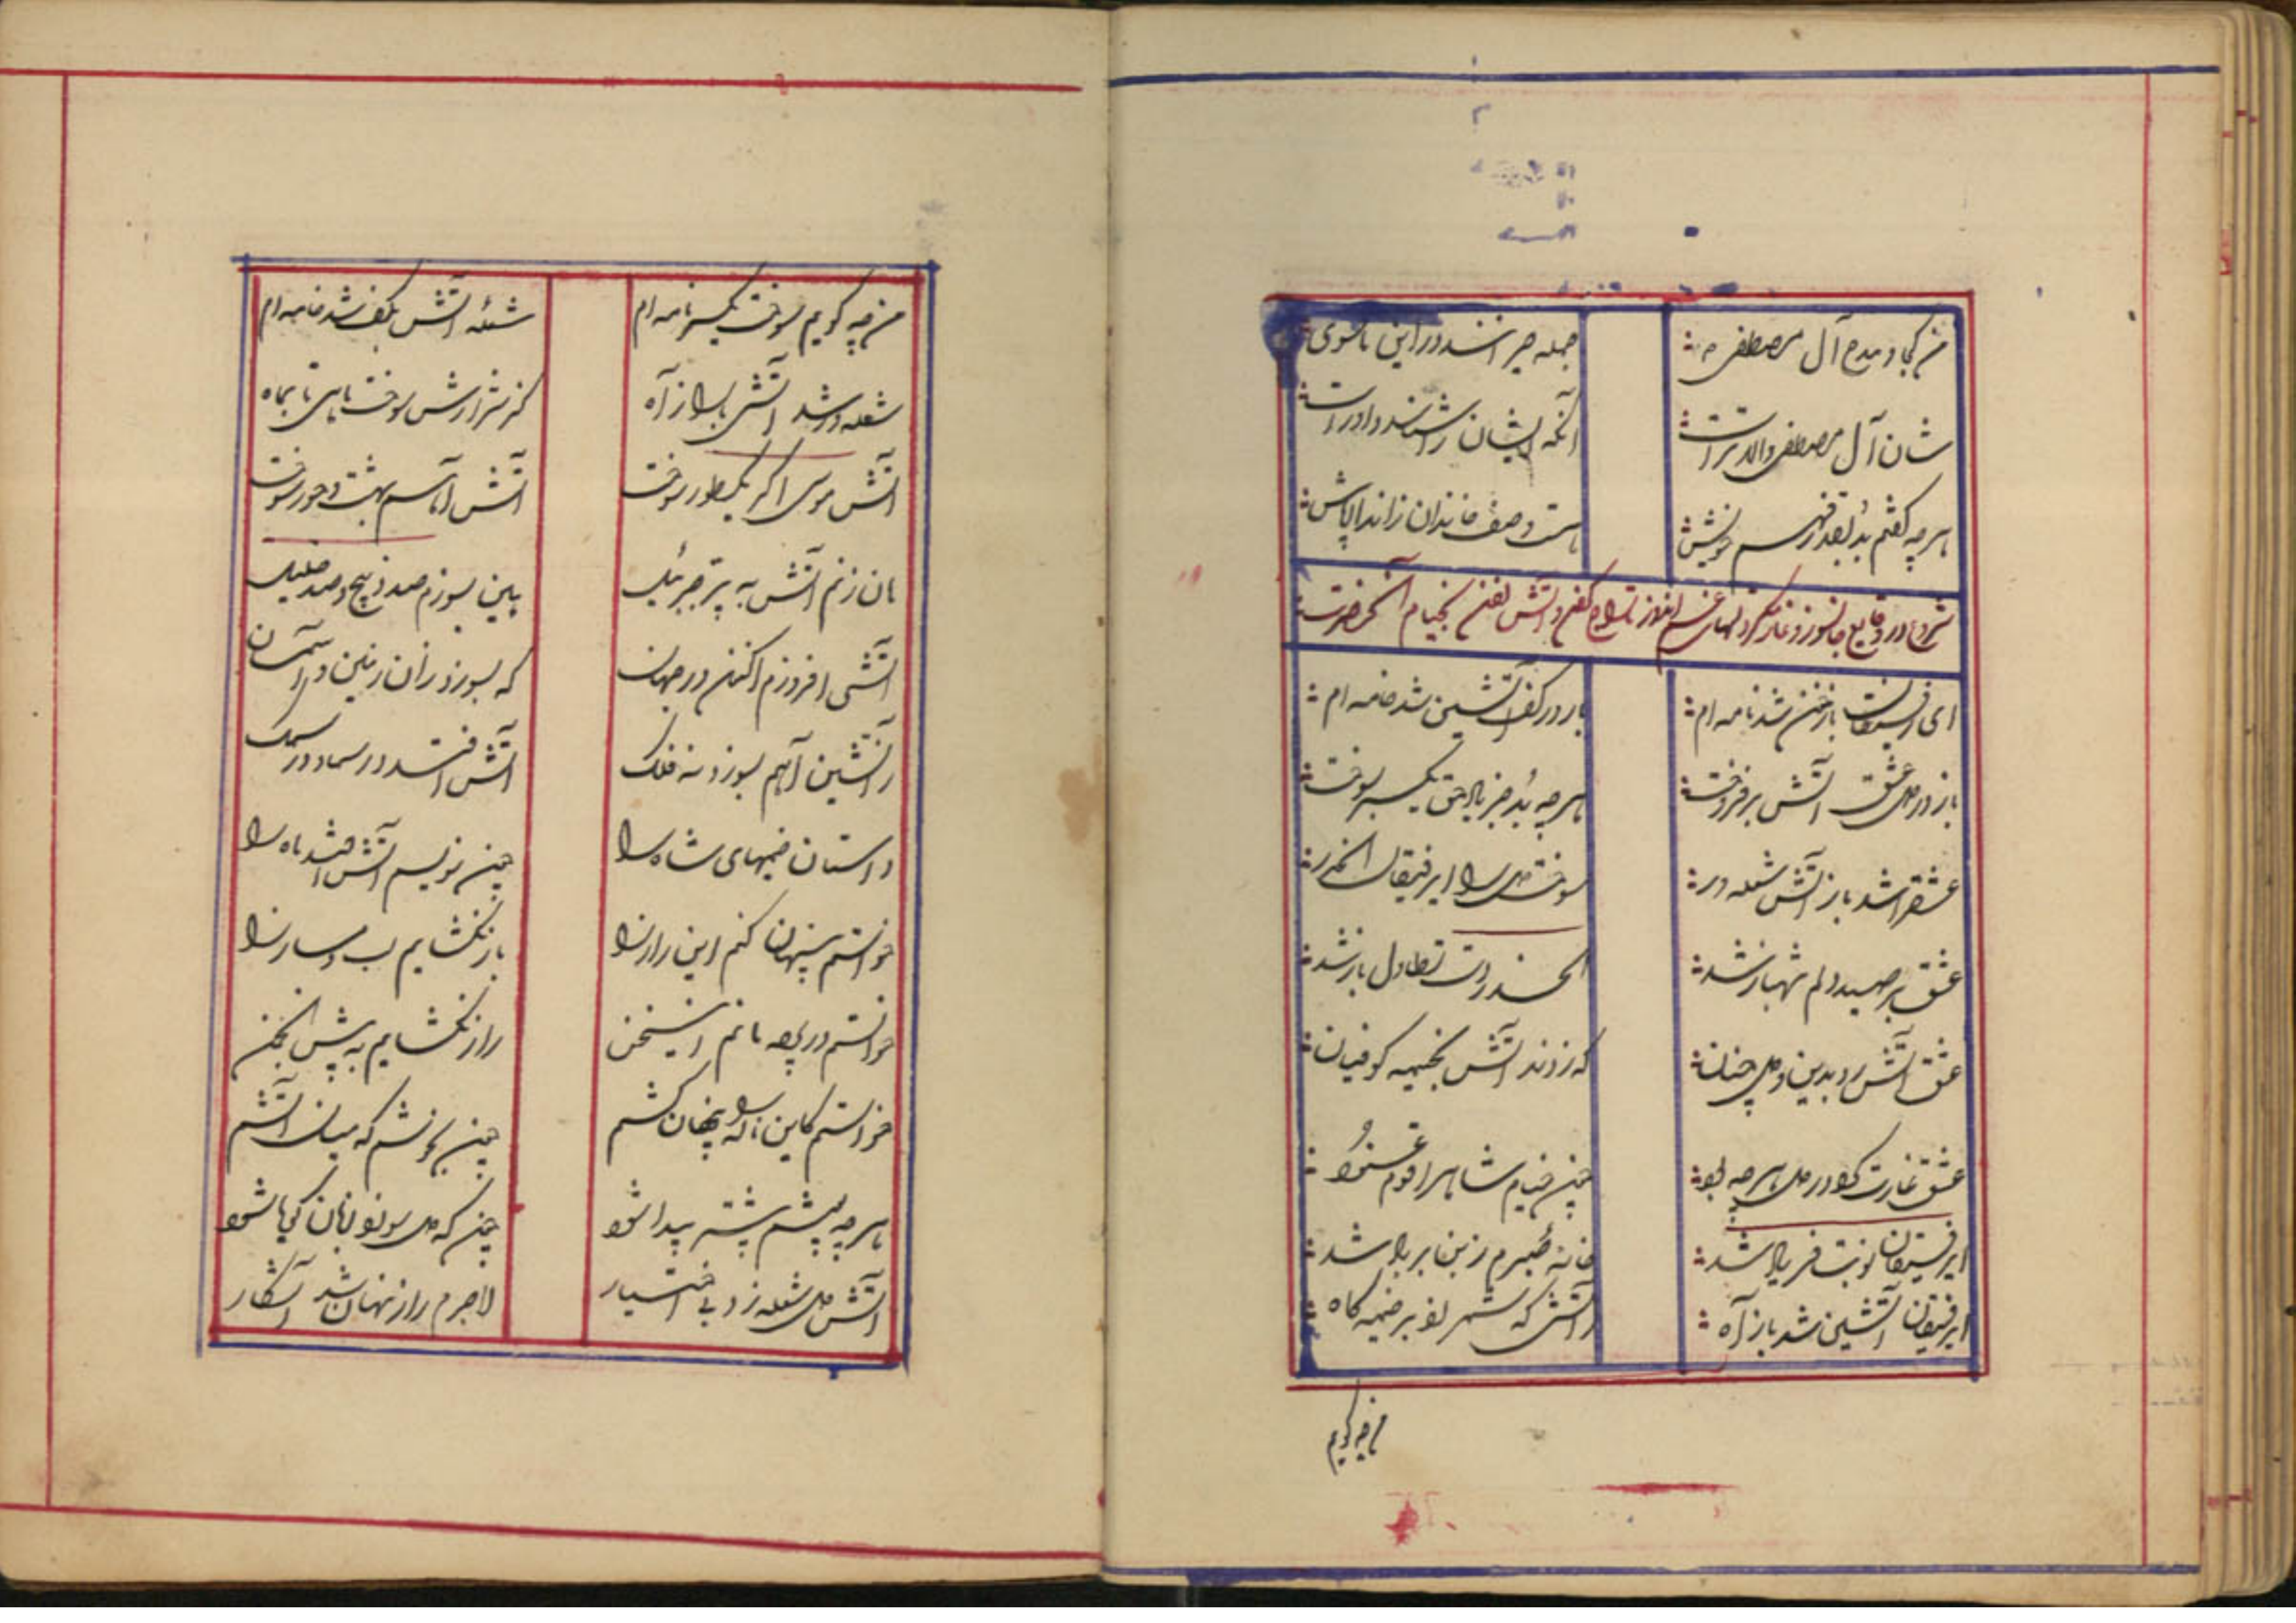 من کجا و مدح آل مصطفی
جمله حیرانند در این ماسوی
شان آل مصطفی والاتر است
آنکه ایشان را شناسد داور است
هر چه گفتم بُد بقدر فهم خویش
هست وصف خاندان زاندازه بیش
شروع در وقایع جانسوز و غارت کردن و آتش زدن بخیام آنحضرت
ای رفیقان باز خون شد نامه ام
باز در کف آتشین شد خامه ام
باز در دل عشق آتش برفروخت
هر چه بُد جز یاد حق یکسر بسوخت
عشق را شد باز آتش شعله ور
سوخت دل را ای رفیقان الحذر
عشق بر صید دلم شهباز شد
الحذر دست تطاول باز شد
عشق آتش زد بدین دل چنان
که زدند آتش بخیمه کوفیان
عشق غارت کرد در دل هر چه بود
چون خیام شاه را قوم عنود
ای رفیقان نوبت فریاد شد
خانه صبرم ز بن بر باد شد
ای رفیقان آتشین شد باز آه
زآتشی که شمر زد بر خیمه گاه
من چه گویم
من چه گویم سوخت یکسر نامه ام
شعله آتش بکف شد خامه ام
شعله ور شد آتشی باز از آه
کز شرارش سوخت ماهی تا بماه
آتش موسی اگر یک طور سوخت
آتش ما هم بهشت و حور سوخت
هان زنم آتش به پر جبرئیل
هین بسوزم صد ذبیح و صد خلیل
آتشی افروزم اکنون در جهان
که بسوزد زان زمین و آسمان
زآتشین آهم بسوزد نه فلک
آتش افتد در سما و در سمک
داستان خیمهای شاه را
چون نویسم آتش افتد ماه را
خواستم پنهان کنم این راز را
باز نگشایم لب دمساز را
خواستم در پرده مانم این سخن
راز نگشایم به پیش انجمن
خواستم کاین ناله را پنهان کشم
چون بجوشم که میان آتشم
هر چه پوشم بیشتر پیدا شود
چون که دل سوزد نهان کی ها شود
آتش دل شعله زد بی اختیار
لاجرم راز نهان شد آشکار